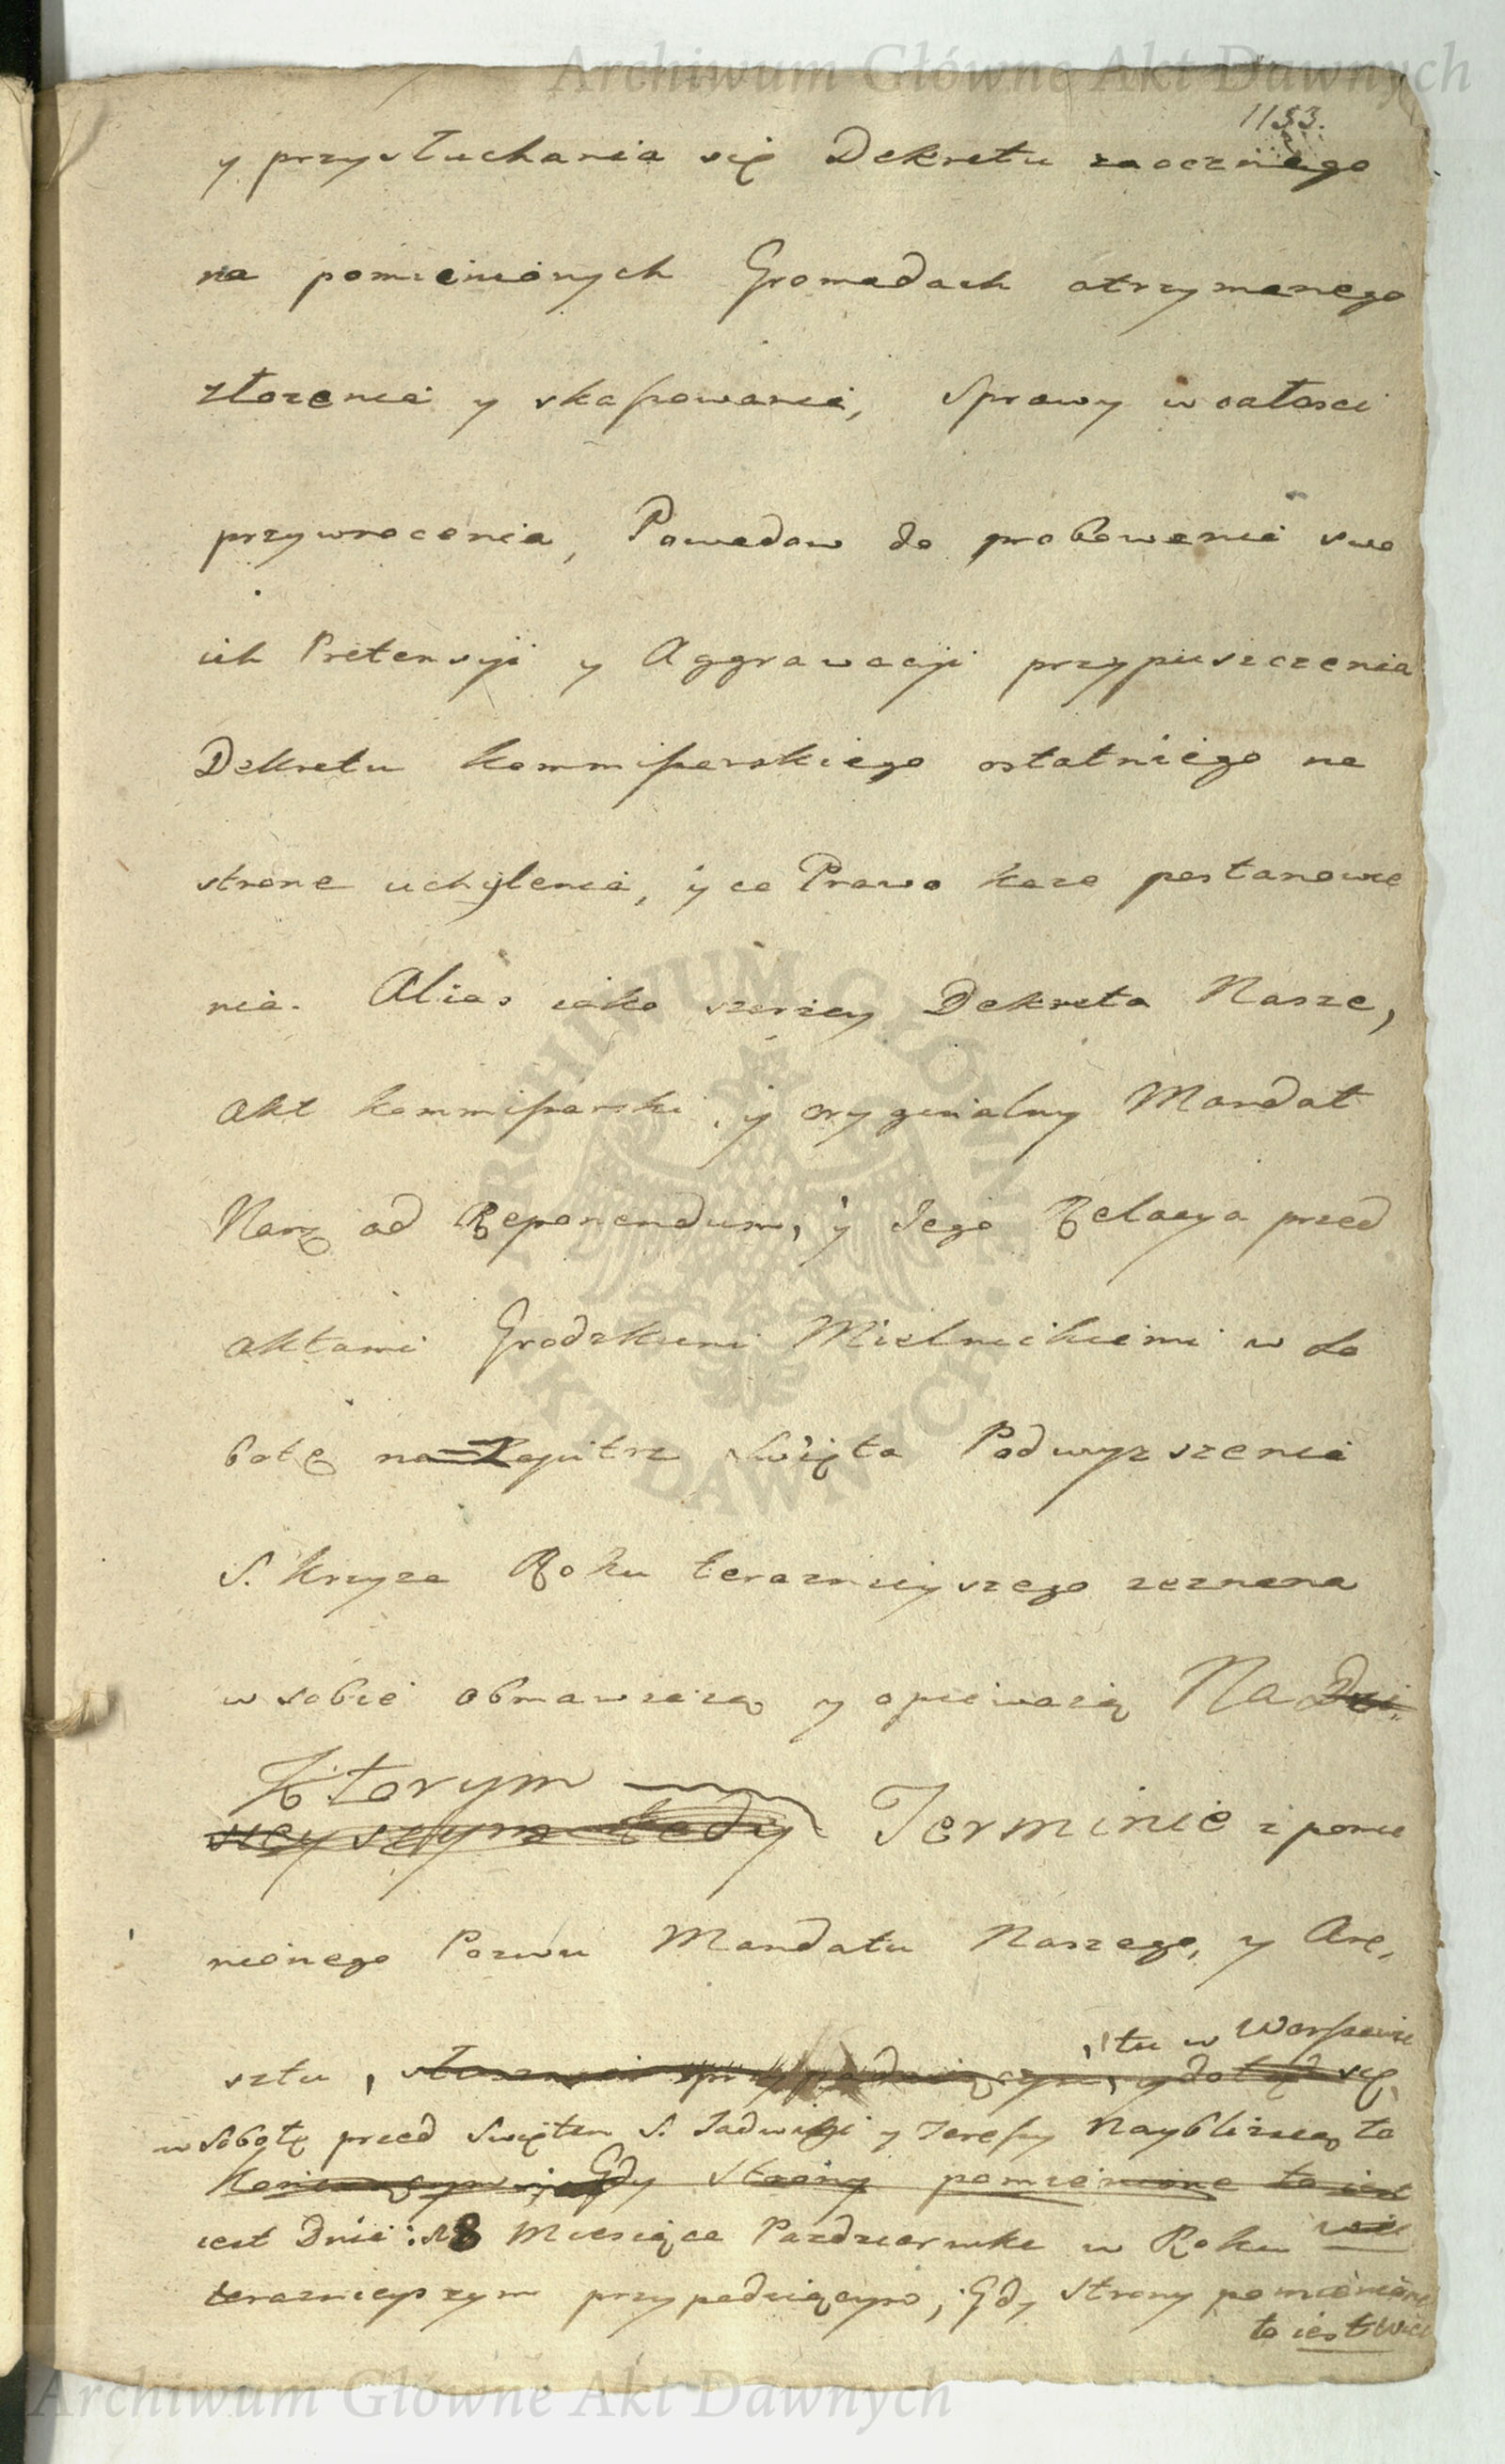 Archiwum Główne Akt Dawnych
1153.
y przysłuchania się Dekretu zaocznego
na pomienionych Gromadach otrzymanego
złozenia y skassowania, Sprawy w całosci
przywrocenia, Powodow do probowania swo
ich Pretensyi y Aggrawacyi przypuszczenia
Dekretu kommissarskiego ostatniego na
strone uchylenia, y co Prawo kaze postanowie
nia. Alias iako szerzey Dekreta Nasze,
Akt kommissarski, y oryginalny Mandat
Nasz ad Reponendum, y Jego Relacya przed
Aktami Grodzkiemi Mielnickiemi w So
botę nazaiutrz Swięta Podwyzszenia
S. krzyza Roku teraznieyszego zeznana
w sobie obmawiaią y opiewaią Na Dzi
Ktorym
sieyszym tedy Terminie z pomie
nionego Pozwu Mandatu Naszego, y Are,
tu w Warszawie
sztu, przypadaiącym,
w Sobotę przed Swiętem S. Jadwigi y Teressy Naybliższą to
Gdy Strony pomienione to iest
iest Dnia 8 Miesiąca Pazdziernika w Roku
teraznieyszym przypadaiącym, Gdy Strony pomienione
to iest
ARCHIWUM GŁÓWNE AKT DAWNYCH
Archiwum Główne Akt Dawnych